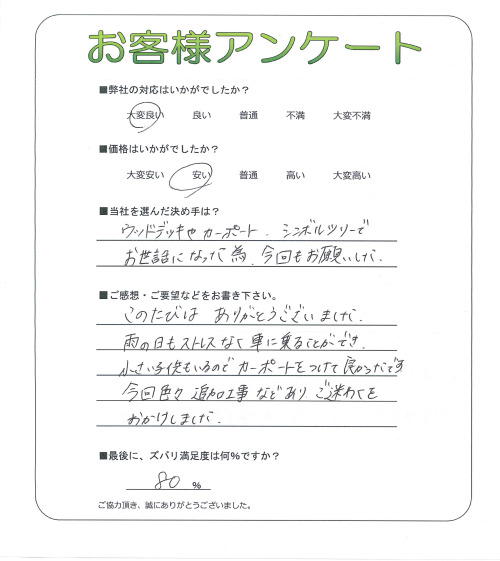 お客様アンケート
■弊社の対応はいかがでしたか？
大変良い 良い 普通 不満 大変不満
■価格はいかがでしたか？
大変安い 安い 普通 高い 大変高い
■当社を選んだ決め手は？
ウッドデッキや カーポート．シンボルツリーで
お世話になった為、今回もお願いした．
■ご感想・ご要望などをお書き下さい。
このたびは ありがとうございました．
雨の日もストレスなく車に乗ることができ．
小さい子供もいるのでカーポートをつけて良かったです
今回色々 追加工事などあり ご迷わくを
おかけしました．
■最後に、ズバリ満足度は何％ですか？
80 %
ご協力頂き、誠にありがとうございました。